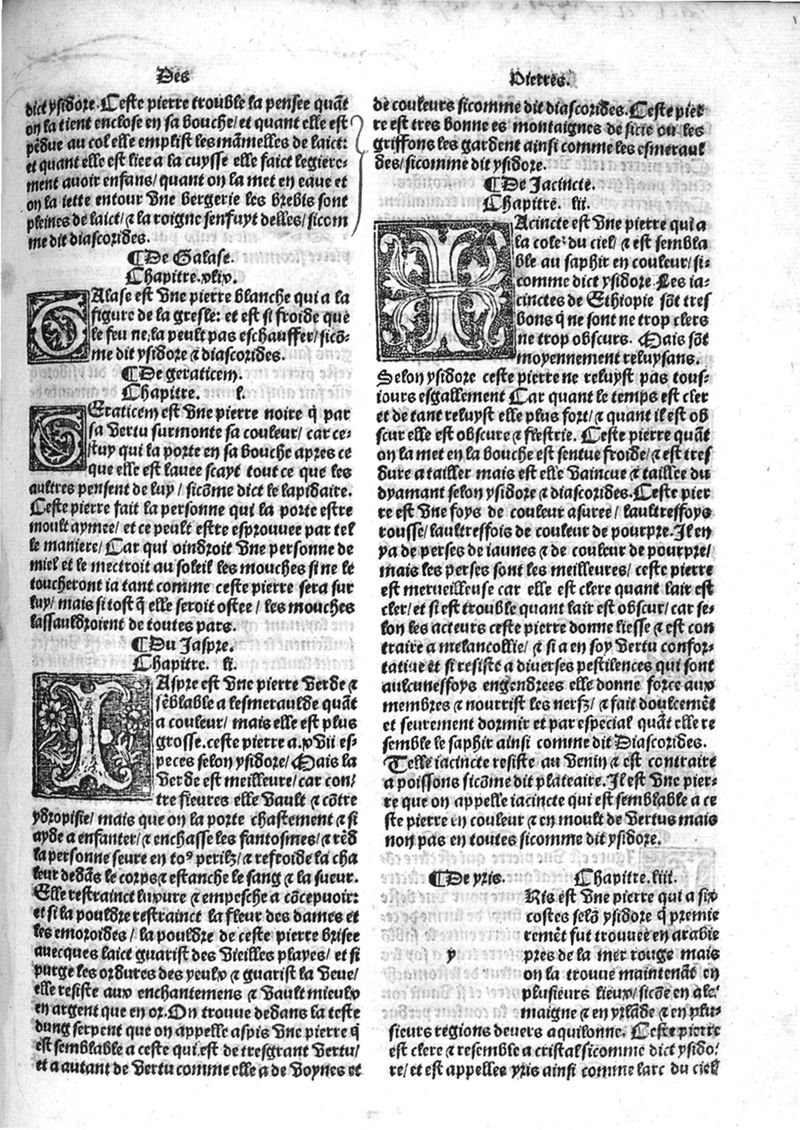 Des
Pierres.
dict ysidore. Ceste pierre trouble la pensee quãt
on la tient enclose en sa bouche/ et quant elle est
pẽdue au col elle emplist les mãmelles de laict:
et quant elle est liee a la cuysse elle faict legiere-
ment auoir enfans/ quant on la met en eaue et
on la iette entour vne bergerie les brebis sont
pleines de laict/ & la roigne senfuyt delles/ sicom
me dit diascorides.
¶De Galase.
Chapitre. xlix.
GAlase est vne pierre blanche qui a la
figure de la gresle: et est si froide que
le feu ne la peult pas eschauffer/ sicõ-
me dit ysidore & diascorides.
¶De geraticem.
Chapitre. l.
GEraticem est vne pierre noire q̃ par
sa vertu surmonte sa couleur/ car ce-
stuy qui la porte en sa bouche apres ce
que elle est lauee scayt tout ce que les
aultres pensent de luy/ sicõme dict le lapidaire.
Ceste pierre fait la personne qui la porte estre
moult aymee/ et ce peult estre esprouuee par tel
le maniere/ Car qui oindroit vne personne de
miel et le mectroit au soleil les mouches si ne le
toucheront ia tant comme ceste pierre sera sur
luy/ mais si tost q̃ elle seroit ostee/ les mouches
lassauldroient de toutes pars.
¶Du Jaspre.
Chapitre. li.
IAspre est vne pierre verde &
sẽblable a lesmeraulde quãt
a couleur/ mais elle est plus
grosse. ceste pierre a .xvii es-
peces selon ysidore/ Mais la
verde est meilleure/ car con-
tre fieures elle vault & cõtre
ydropisie/ mais que on la porte chastement & si
ayde a enfanter/ & enchasse les fantosmes/ & rẽd
la personne seure en to⁹ perilz/ & refroide la cha
leur dedãs le corps & estanche le sang & la sueur.
Elle restrainct luxure & empesche a cõcepuoir:
et si la pouldre restrainct la fleur des dames et
les emoroides/ la pouldre de ceste pierre brisee
auecques laict guarist des vieilles playes/ et si
purge les ordures des yeulx & guarist la veue/
elle resiste aux enchantemens & vault mieulx
en argent que en or. On trouue dedans la teste
dung serpent que on appelle aspis vne pierre q̃
est semblable a ceste qui est de tresgrant vertu/
et a autant de vertu comme elle a de voynes et
de couleurs sicomme dit diascorides. Ceste pier
re est tres bonne es montaignes de sicie ou les
griffons les gardent ainsi comme les esmeraul
des/ sicomme dit ysidore.
¶De Jacincte.
Chapitre. lii.
IAcincte est vne pierre qui a
la cole² du ciel/ & est sembla
ble au saphir en couleur/ si-
comme dict ysidore. Les ia-
cinctes de Ethiopie sõt tres
bons q̃ ne sont ne trop clers
ne trop obscurs. Mais sõt
moyennement reluysans.
Selon ysidore ceste pierre ne reluyst pas tous-
iours esgallement Car quant le temps est cler
et de tant reluyst elle plus fort/ & quant il est ob
scur elle est obscure & flestrie. Ceste pierre quãt
on la met en la bouche est sentue froide/ & est tres
dure a tailler mais est elle vaincue & taillee du
dyamant selon ysidore & diascorides. Ceste pier
re est vne foys de couleur asuree/ laultreffoys
rousse/ laultreffois de couleur de pourpre. Il en
ya de perses de iaunes & de couleur de pourpre/
mais les perses sont les meilleures/ ceste pierre
est merueilleuse car elle est clere quant lair est
cler/ et si est trouble quant lair est obscur/ car se-
lon les acteurs ceste pierre donne liesse & est con
traire a melancollie/ & si a en soy vertu confor-
tatiue et si resiste a diuerses pestilences qui sont
aulcunesfoys engendrees elle donne force aux
membres & nourrist les nerfz/ & fait doulcemẽt
et seurement dormir et par especial quãt elle re
semble le saphir ainsi comme dit Diascorides.
Telle iacincte resiste au venin & est contraire
a poissons sicõme dit plateaire. Il est vne pier-
re que on appelle iacincte qui est semblable a ce
ste pierre en couleur & en moult de vertus mais
non pas en toutes sicomme dit ysidore.
¶De yris. Chapitre. liii.
y Ris est vne pierre qui a six
costes selõ ysidore q̃ premie
remẽt fut trouuee en arabie
pres de la mer rouge mais
on la trouue maintenãt en
plusieurs lieux/ sicõe en ale
maigne & en yrlãde & en plu-
sieurs regions deuers aquilonne. Ceste pierre
est clere & resemble a cristal sicomme dict ysido-
re/ et est appellee yris ainsi comme larc du ciel